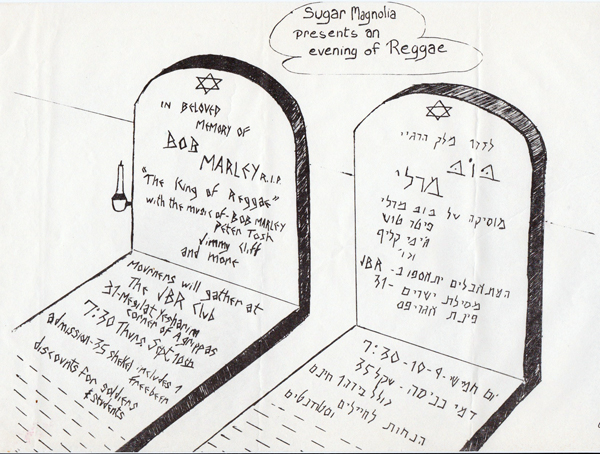 Sugar Magnolia
presents an
evening of Reggae
IN BELOVED
MEMORY OF
BOB
MARLEY R.I.P.
"The King of Reggae"
with the music of-BOB MARLEY
Peter Tosh
Jimmy Cliff
and more
Mourners will gather at
The JBR Club
31-Mesilat Yesharim
corner of Agrippas
7:30 Thurs. Sept 10th
admission-35 shekel-includes 1
free beer
discounts for soldiers
& students
לזכר מלך הרג'יי
בוב
מרלי
מוסיקה של בוב מרלי
פיטר טוש
ג'ימי קליף
וכו'
המתאבלים יתאספו ב- JBR
מסילת ישרים -31
פינת אגריפס
יום חמישי 7:30-10-9-
דמי כניסה - שקל 35
כולל בירה 1 חינם
הנחות לחיילים וסטודנטים